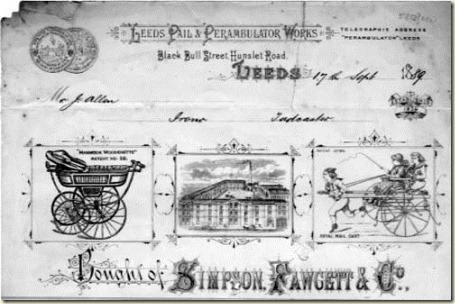 LEEDS PAIL & PERAMBULATOR WORKS
TELEGRAPHIC ADDRESS
"PERAMBULATOR" LEEDS
Black Bull Street, Hunslet Road,
LEEDS 17th Sept 1889
Mr J. Allen
Tadcaster
PATENT NO.
ROYAL MAIL CART
Bought of SIMPSON, FAWCETT & Co,